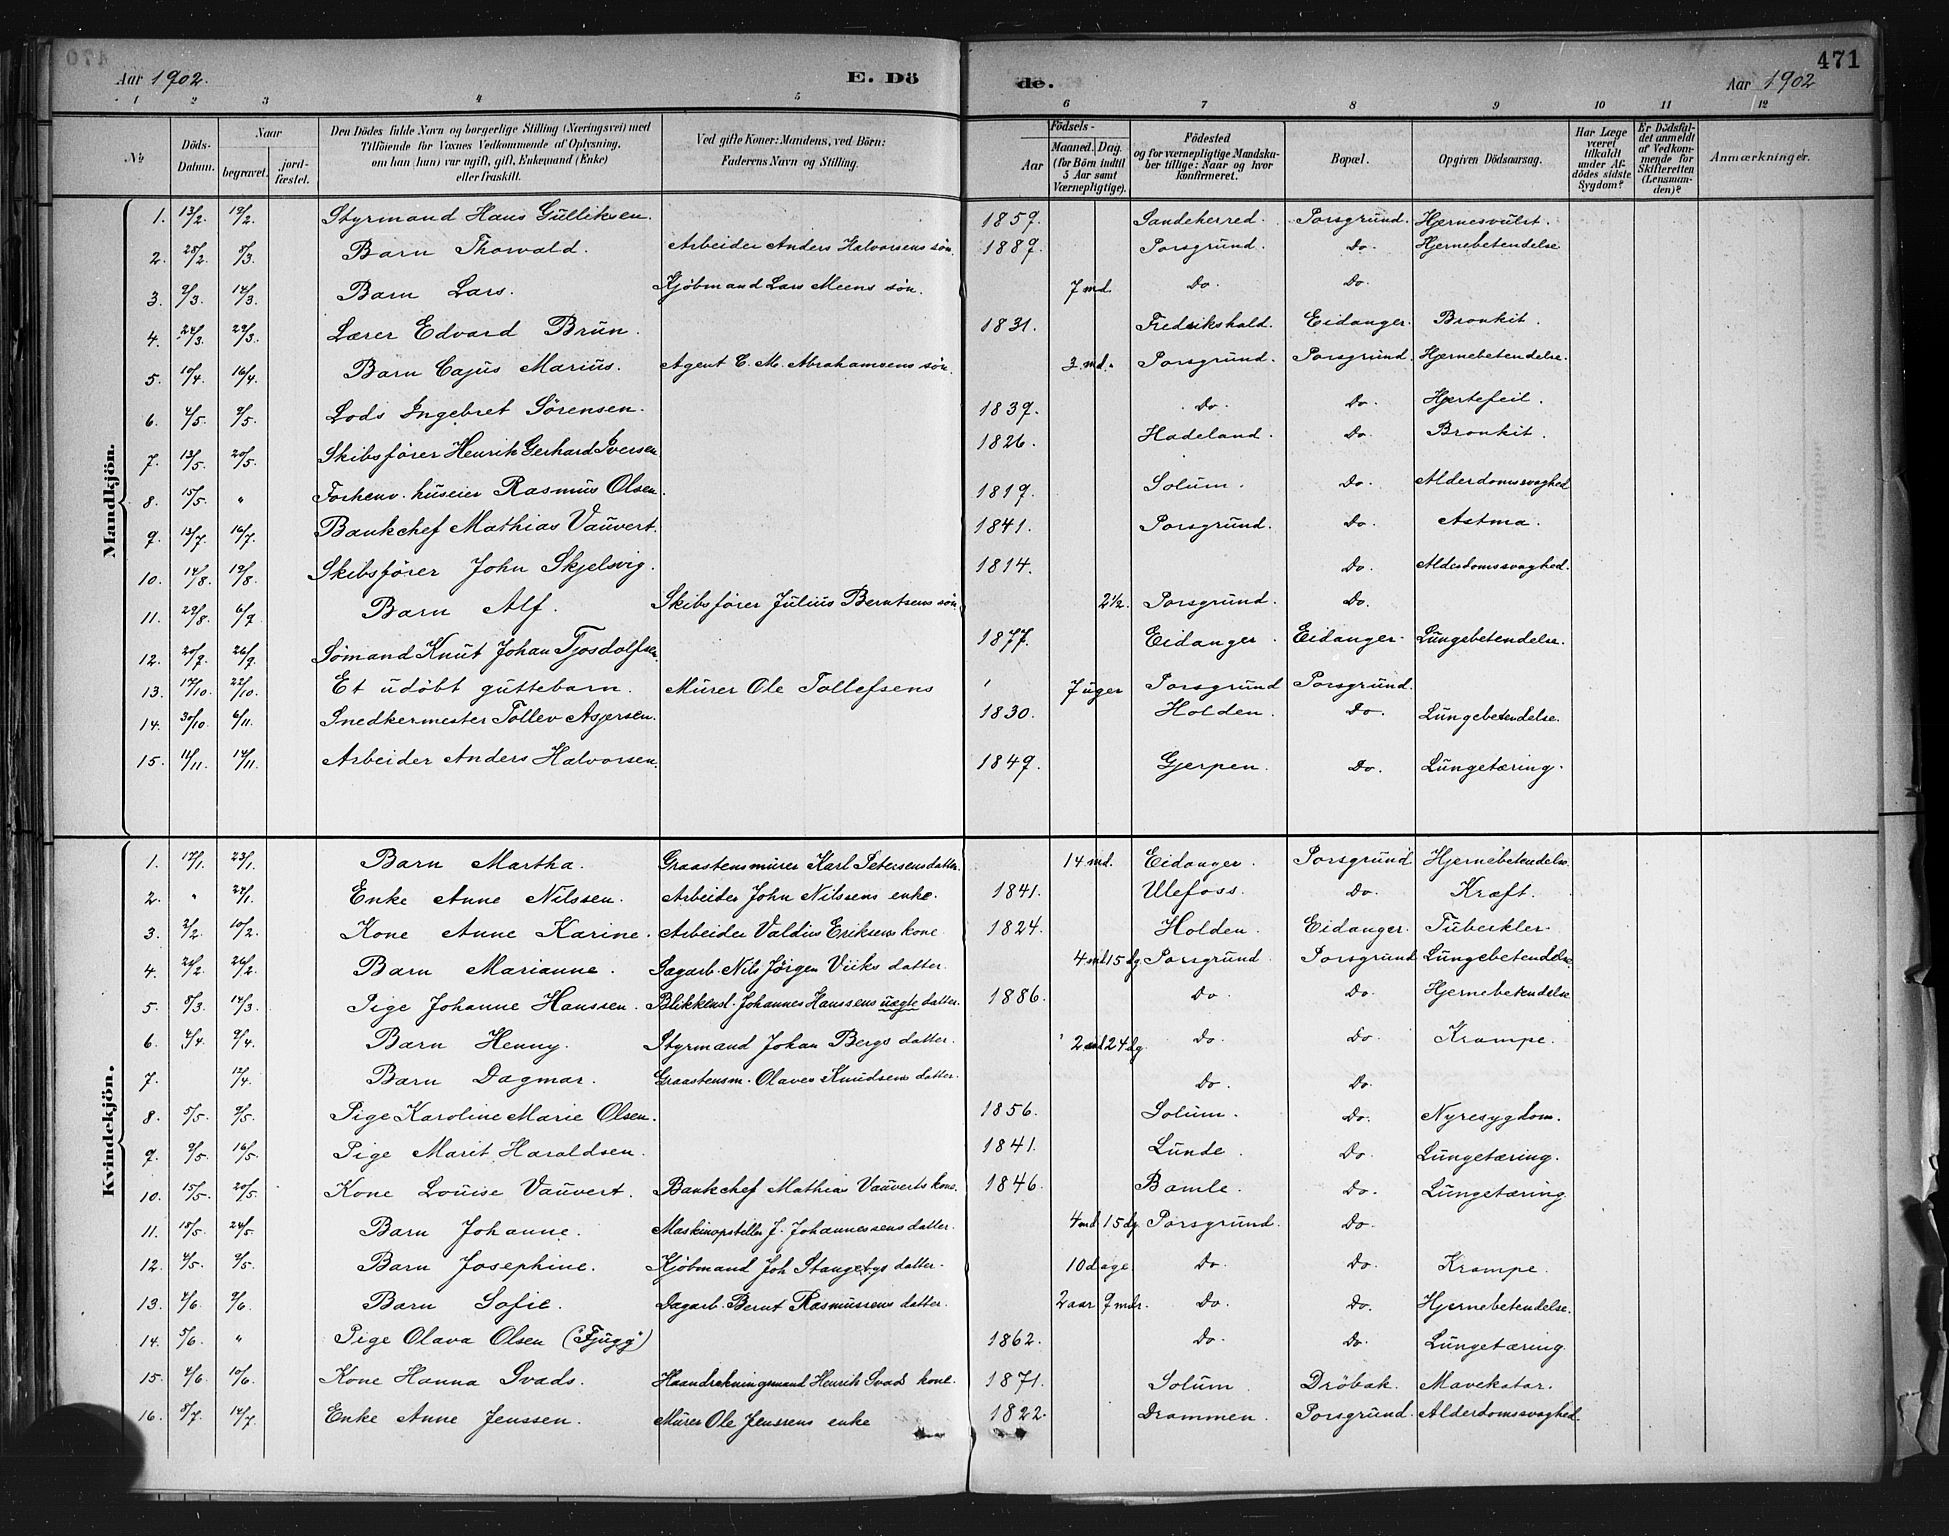 Aar 1902. E. Dö de. Aar 1902 471
1 2 3 4 5 6 7 8 9 10 11 12
№ Döds-Datum. Naar begravet. jord-fæstet. Den Dödes fulde Navn og borgerlige Stilling (Næringsvei) med Tilföiende for Voxnes Vedkommende af Oplysning, om han (hun) var ugift, gift, Enkemand (Enke) eller fraskilt. Ved gifte Koner: Mandens, ved Börn: Faderens Navn og Stilling. Födsels- Aar Maaned. Dag. (for Börn indtil 5 Aar samt Værnepligtige). Födested og for værnepligtige Mandskaber tillige: Naar og hvor konfirmeret. Bopæl. Opgiven Dödsaarsag. Har Læge været tilkaldt under Afdödes sidste Sygdom? Er Dödsfaldet anmeldt af Vedkommende for Skifteretten (Lensmanden)? Anmærkninger.
Mandkjön.
1. 13/2. 19/2. Styrmand Hans Gulliksen. 1859. Sandeherred. Porsgrund. Hjernesvulst.
2. 28/2. 8/3. Barn Thorvald. Arbeider Anders Halvorsens søn. 1887. Porsgrund. Do. Hjernebetendelse
3. 9/3. 14/3. Barn Lars. Kjöbmand Lars Meens søn. 7 md. Do. Do.
4. 24/3. 29/3. Lærer Edvard Brun. 1831. Fredrikshald. Eidanger. Bronkit.
5. 10/4. 16/4. Barn Cajus Marius. Agent C. M. Abrahamsens søn. 3 md. Porsgrund. Porsgrund. Hjernebetendelse.
6. 4/5. 9/5. Lods Ingebret Sörensen. 1839. Do. Do. Hjertefeil.
7. 13/5. 20/5. Skibsfører Henrik Gerhard Iversen 1826. Hadeland. Do. Bronkit.
8. 15/5. " Forhenv. huseier Rasmus Olsen. 1819. Solum. Do. Alderdomssvaghed
9. 13/7. 16/7. Bankchef Mathias Vauvert. 1841. Porsgrund. Do. Astma.
10. 14/8. 19/8. Skibsfører John Skjelsvig. 1814. Do. Alderdomssvaghed.
11. 29/8. 6/9. Barn Alf. Skibsfører Julius Berntsens søn 2½. Porsgrund. Do.
12. 20/9. 26/9. Sömand Knut Johan Tjosdolfsen. 1877. Eidanger. Eidanger. Lungebetendelse.
13. 17/10. 22/10. Et udöbt guttebarn. Murer Ole Tollefsens 7 uger Porsgrund Porsgrund.
14. 30/10. 6/11. Snedkermester Tollev Asjersen. 1830. Holden. Do. Lungebetendelse.
15. 11/11. 14/11. Arbeider Anders Halvorsen. 1849. Gjerpen. Do. Lungetæring.
Kvindekjön.
1. 17/1. 23/1. Barn Martha. Graastensmurer Karl Petersens datter. 14 md. Eidanger. Porsgrund Hjernebetendelse
2. " 28/1. Enke Anne Nilssen. Arbeider John Nilssens enke. 1841. Ulefoss. Do. Kræft.
3. 2/2. 10/2. Kone Anne Karine. Arbeider Valdius Eriksens kone 1824. Holden. Eidanger. Tuberkler.
4. 21/2. 26/2. Barn Marianne. Sagarb. Nils Jörgen Viiks datter. 4 md 15 dg Porsgrund. Porsgrund Lungebetendelse.
5. 8/3. 14/3. Pige Johanne Hanssen. Blikkensl. Johannes Hanssens uægte datter. 1886. Do. Do. Hjernebetendelse
6. 4/4. 9/4. Barn Henny. Styrmand Johan Bergs datter. 2 md 24 dg. Do. Do. Krampe.
7. 12/4. Barn Dagmar. Graastensm. Olaves Knudsens datter. Do. Do.
8. 5/5. 9/5. Pige Karoline Marie Olsen. 1856. Solum. Do. Nyresygdom.
9. 9/5. 16/5. Pige Marit Haraldsen. 1841. Lunde. Do. Lungetæring.
10. 15/5. 20/5. Kone Louise Vauvert. Bankchef Mathias Vauverts kone. 1846. Bamle. Do. Lungetæring
11. 18/5. 24/5. Barn Johanne. Maskinopstiller J. Johannessens datter. 4 md 15 dg. Porsgrund. Do.
12. 4/5. 9/5. Barn Josephine. Kjöbmand Joh Stangebys datter. 10 dage Do. Do. Krampe.
13. 4/6. 9/6. Barn Sofie. Dagarb. Bernt Rasmussens datter. 2 aar 9 mdr. Do. Do. Hjernebetendelse.
14. 5/6. " Pige Olava Olsen ("Fjugg") 1862. Do. Do. Lungetæring
15. 4/6. 10/6. Kone Hanna Svads. Haandrekningsmand Henrik Svads kone. 1871. Solum. Dröbak. Mavekatar.
16. 8/7. 14/7. Enke Anne Jenssen. Murer Ole Jenssens enke 1822. Drammen. Porsgrund. Alderdomssvaghed.